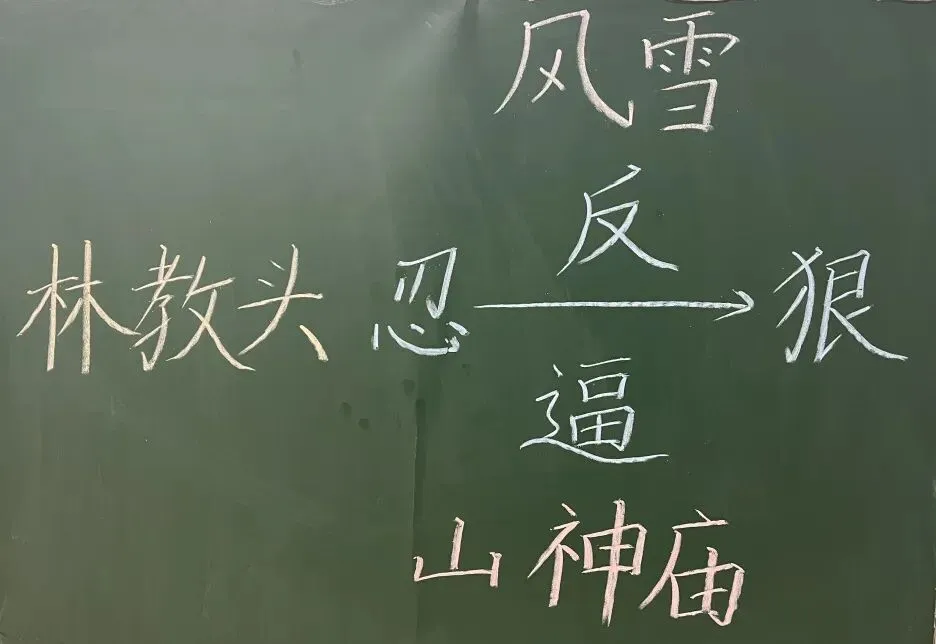 风雪
反
林教头 忍 狠
逼
山神庙